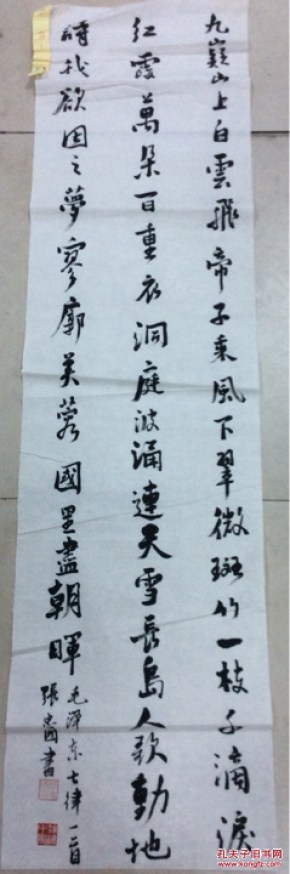 九嶷山上白雲飛帝子乘風下翠微斑竹一枝千滴淚
紅霞萬朵百重衣洞庭波涌連天雪長島人歌動地
詩我欲因之夢寥廓芙蓉國里盡朝暉
毛澤東七律一首
張 書
孔夫子旧书网